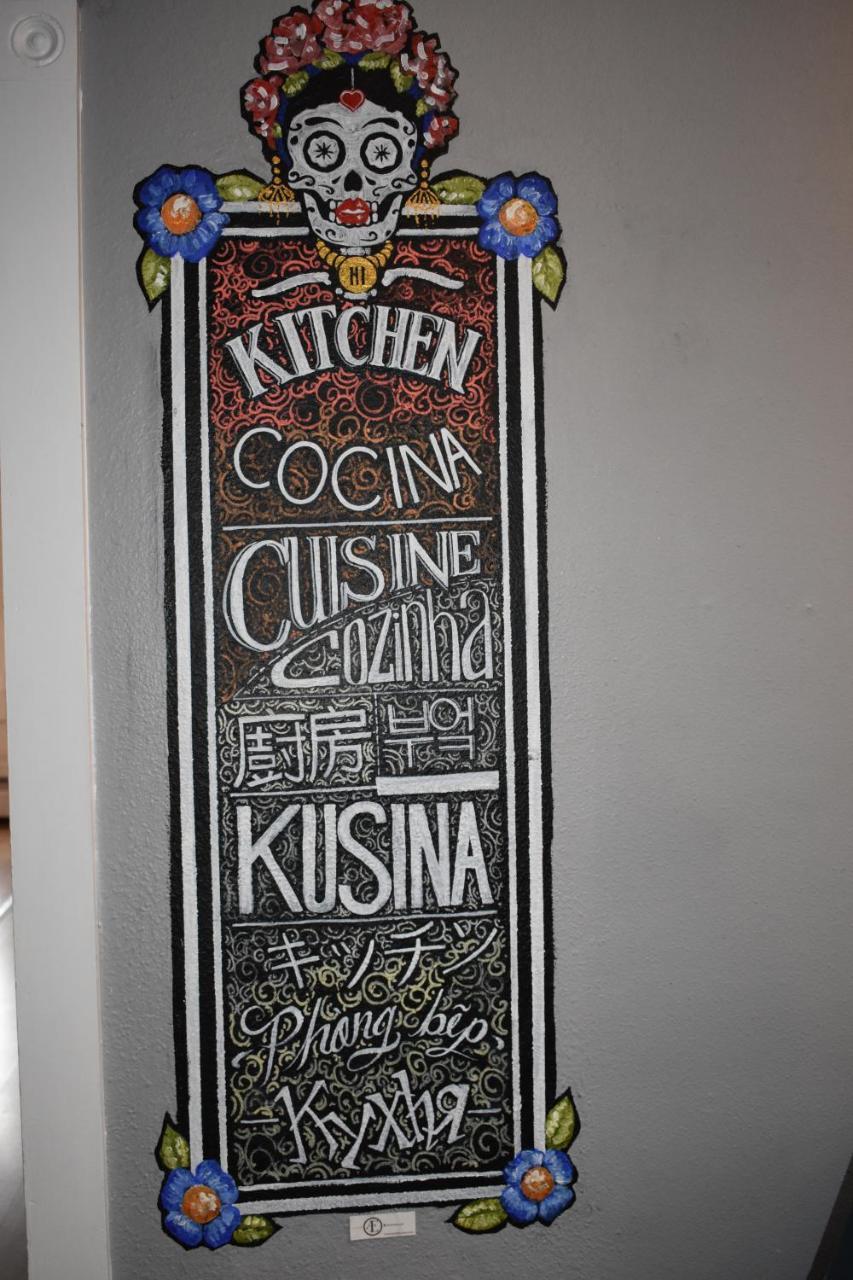 HI
KITCHEN
COCINA
CUISINE
Cozinha
廚房 부엌
KUSINA
キッノチツ
Phòng bếp
Кухня